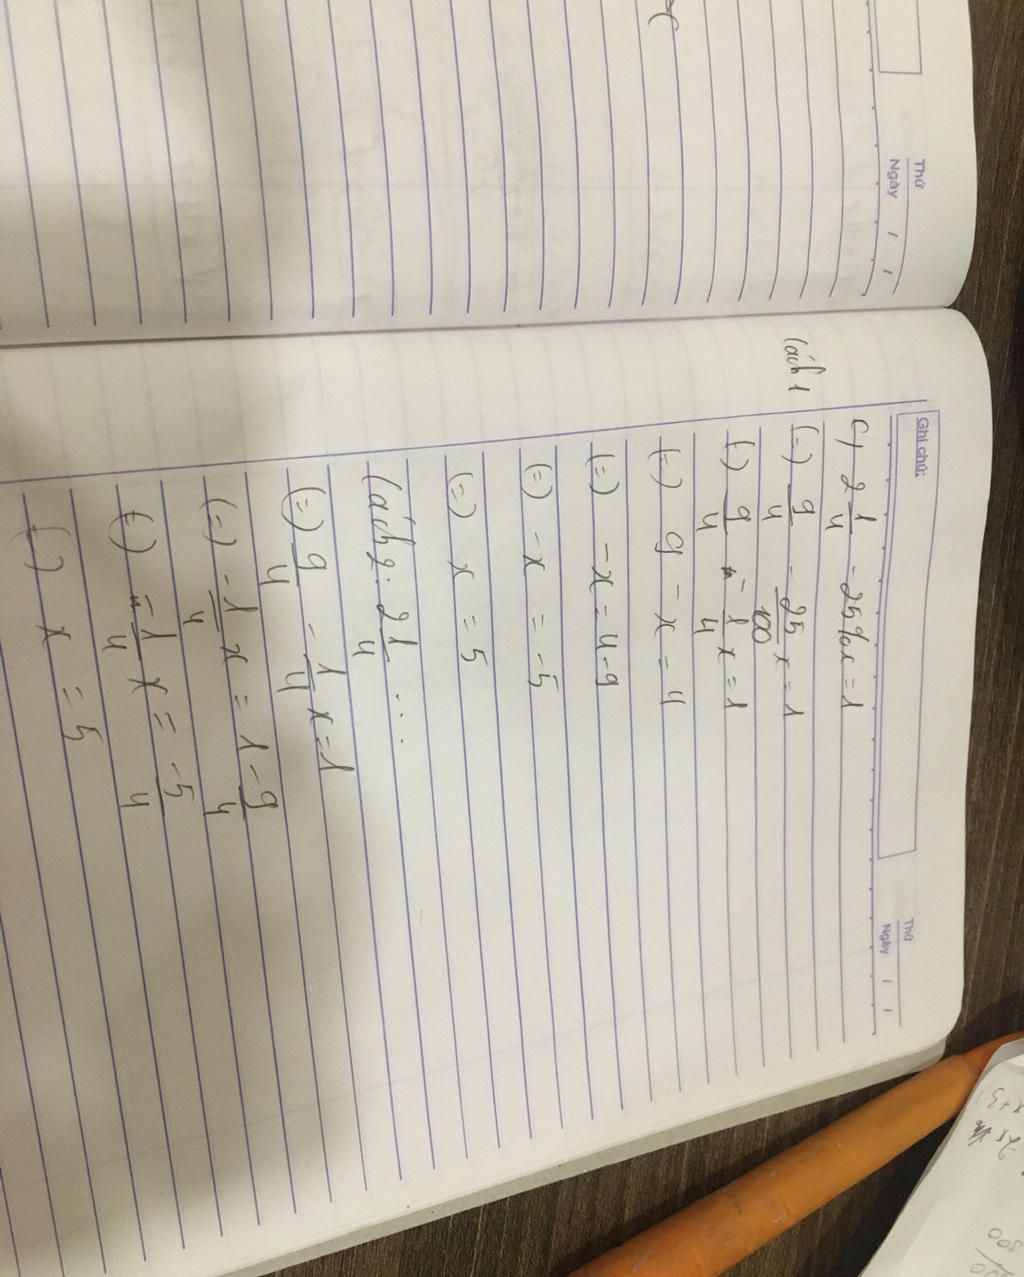 Thứ
Ngày / /
Ghi chú:
Thứ
Ngày / /
c, 2 1/4 - 25%x = 1
Cách 1
(=) 9/4 - 25/100 x = 1
(=) 9/4 - 1/4 x = 1
(=) 9 - x = 4
(=) - x = 4 - 9
(=) - x = -5
(=) x = 5
Cách 2. 2 1/4 ...
(=) 9/4 - 1/4 x = 1
(=) - 1/4 x = 1 - 9/4
(=) - 1/4 x = -5/4
(=) x = 5
x+3)
300